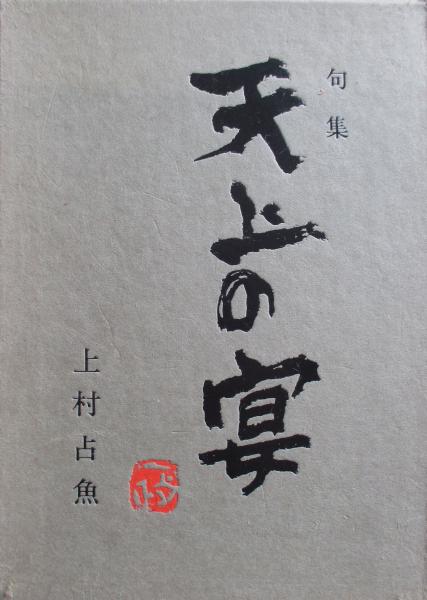 句集
天上の宴
上村占魚